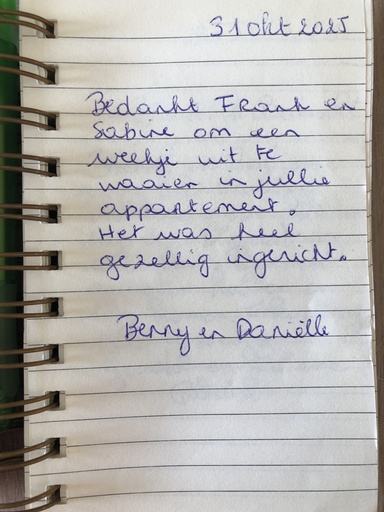 31 okt 2025
Bedankt Frank en
Sabine om een
weekje uit te
waaien in jullie
appartement.
Het was heel
gezellig ingericht.
Benny en Daniëlle